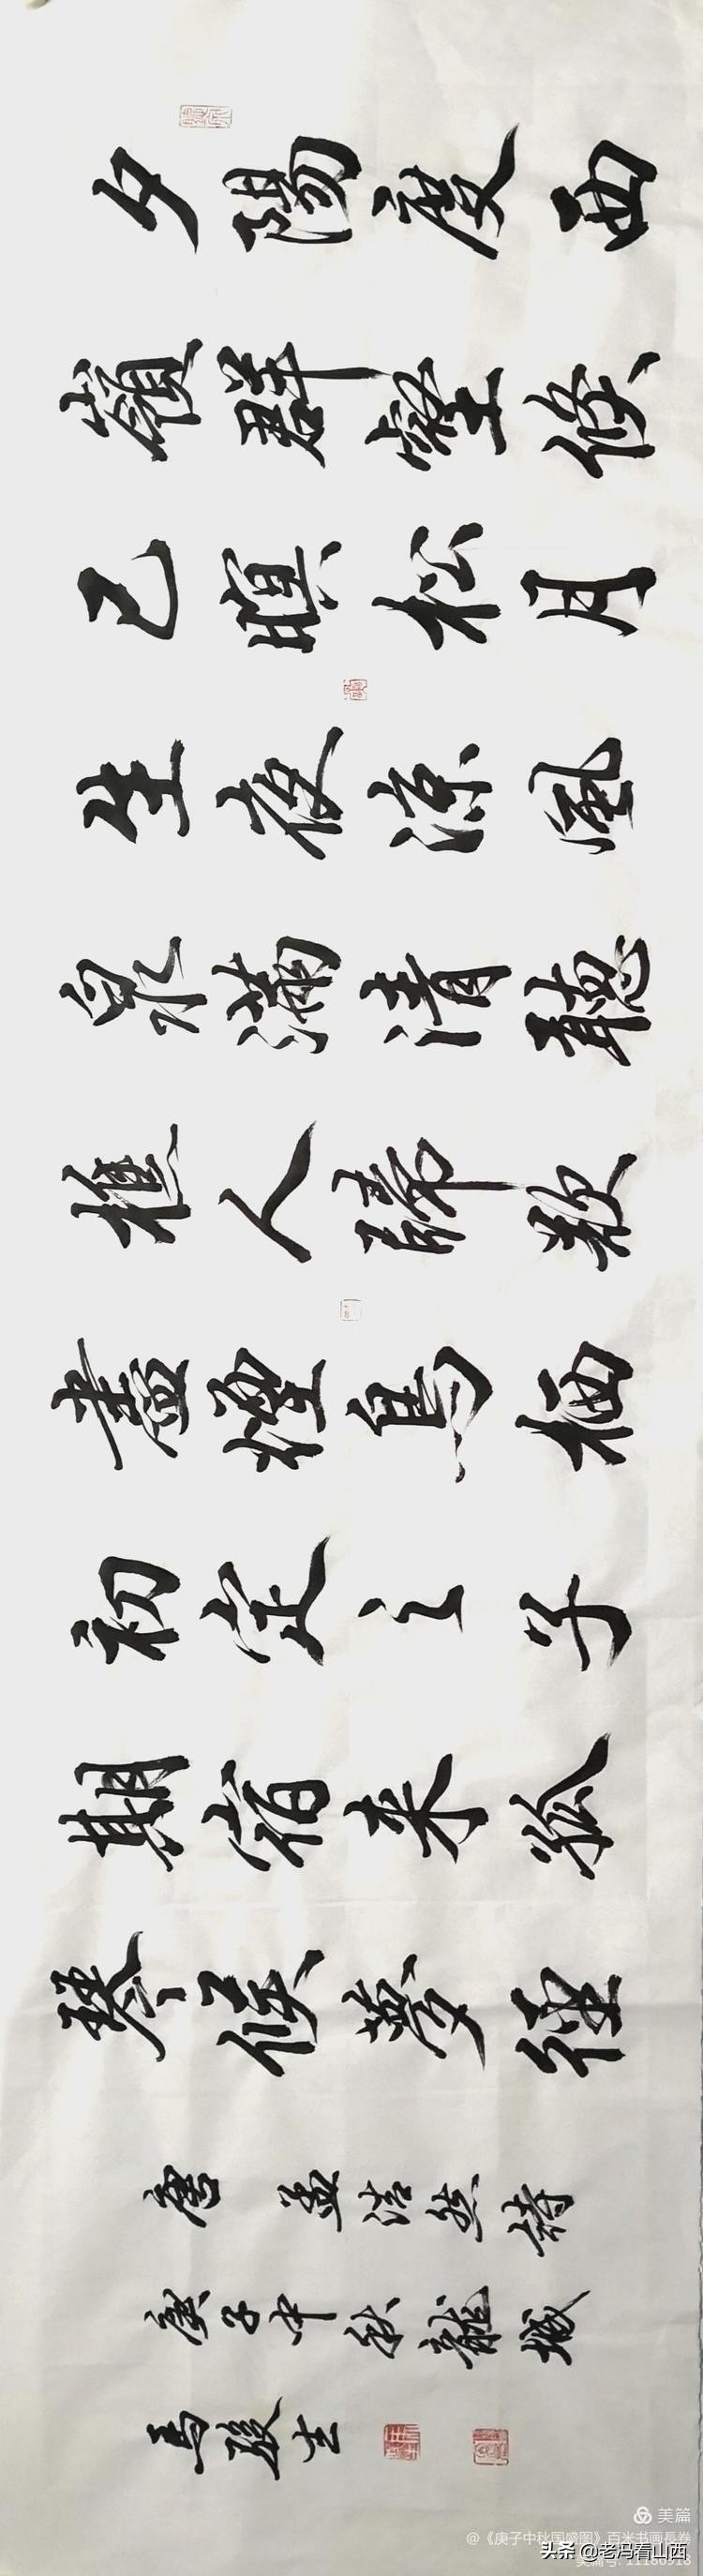 夕陽度西
嶺群壑倏
已暝松月
生夜涼風
泉滿清聽
樵人歸欲
盡煙鳥栖
初定之子
期宿来孤
琴候萝徑
唐 孟浩然詩
庚子中秋龍城
馬 生
美篇
@《庚子中秋国盛图》百米书画長卷
头条 @老冯看山西